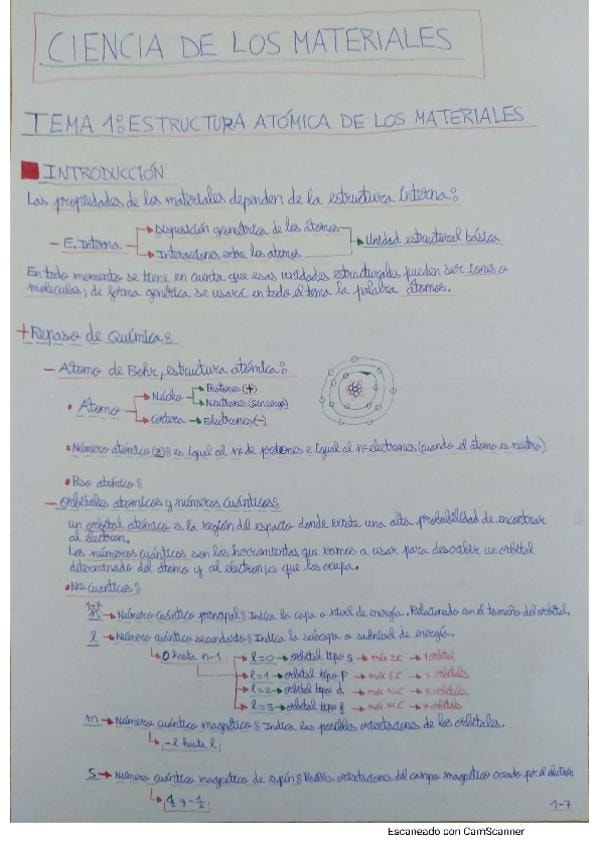 CIENCIA DE LOS MATERIALES
TEMA 1: ESTRUCTURA ATÓMICA DE LOS MATERIALES
INTRODUCCIÓN
Las propiedades de los materiales dependen de la estructura Interna:
Disposición geométrica de los átomos
– E. Interna → Unidad estructural básica
Interacciones entre los átomos
En todo momento se tiene en cuenta que esas unidades estructurales pueden ser iones o
moléculas; de forma genérica se usará en todo el tema la palabra átomos.
+ Repaso de Química:
– Atomo de Bohr, estructura atómica:
Protones (+)
Núcleo → Neutrones (sin carga)
• Átomo
Corteza → Electrones (-)
• Número atómico (z): es igual al nº de protones e igual al nº electrones (cuando el átomo es neutro)
• Peso atómico:
– Orbitales atomicos y números cuánticos:
un orbital atómico es la región del espacio donde existe una alta probabilidad de encontrar
al electron.
Los números cuánticos son las herramientas que vamos a usar para describir un orbital
determinado del átomo y al electron/es que los ocupa.
• Nº cuanticos:
1-7
n → Número cuántico principal: Indica la capa o nivel de energía. Relacionado con el tamaño del orbital.
l → Número cuántico secundario: Indica la subcapa o subnivel de energía.
0 hasta n-1 → l=0 → orbital tipo s → máx 2e → 1 orbital
l=1 → orbital tipo p → máx 6e → 3 orbitals
l=2 → orbital tipo d → máx 10e → 5 orbitals
l=3 → orbital tipo f → máx 14e → 7 orbitals
m → Número cuántico magnético: Indica las posibles orientaciones de los orbitales.
-l hasta l
S → Número cuántico magnético de espín: Posibles orientaciones del campo magnético creado por el electrón
½ y -½
1-7
Escaneado con CamScanner